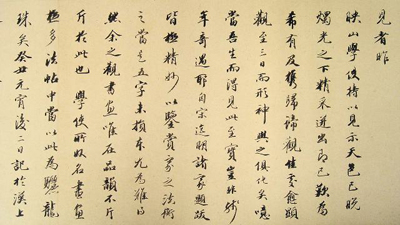 見者昨
映山學使持以見示天邑已晚
燭光之下精采迸出即已歎為
希有及攜歸諦觀佳處愈顯
觀至三日而形神與之俱化矣噫
當吾生而得見此至寶豈非
幸哉遇耶自宋迄明諸家題跋
皆極精妙以鑒賞家之法術
之當是五字未損本尤為難得
然余之觀書畫唯在品韻不斤
斤於此也學使所收名書畫
極多法帖中當以此為驪龍
珠矣癸丑元宵後二日記於漢上